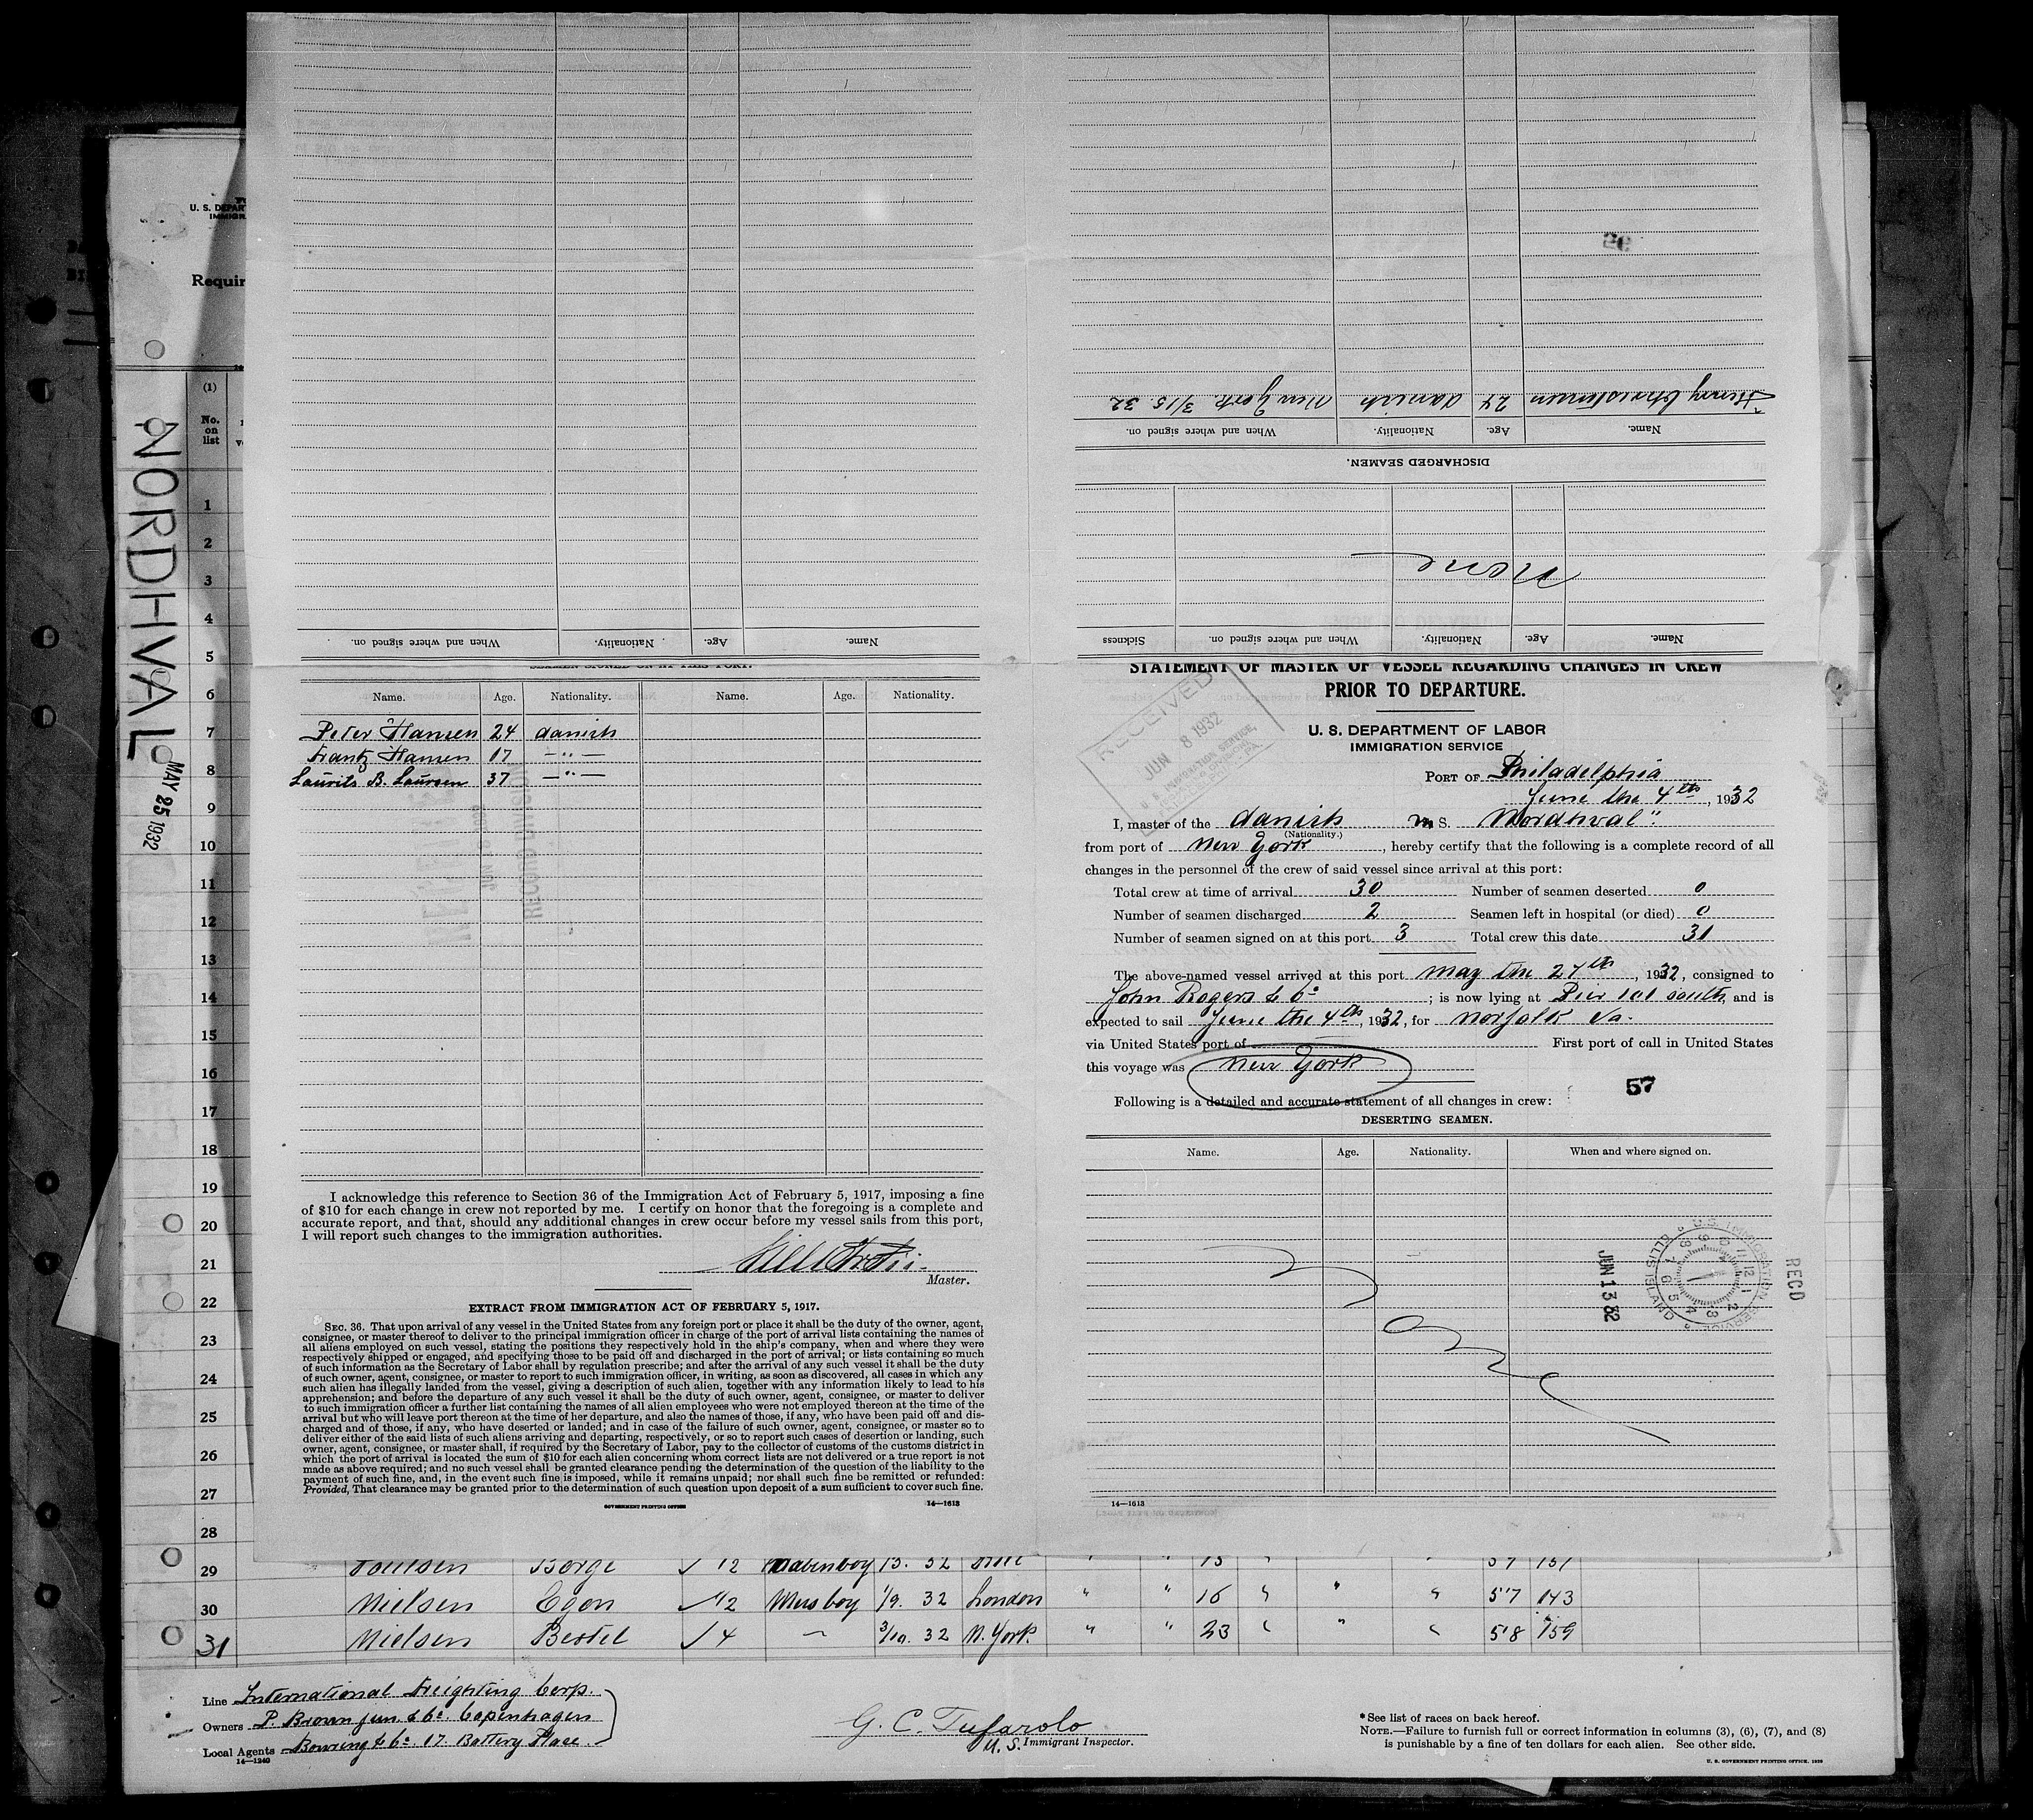 NORDHVAL
MAY 25 1932
U. S. DEPAR
IMMIGR
Requir
(1)
No.
on
list
1
2
3
4
5
6
7
8
9
10
11
12
13
14
15
16
17
18
19
20
21
22
23
24
25
26
27
28
29
30
31
Name. Age. Nationality. When and where signed on.
Name. Age. Nationality. When and where signed on. Sickness
None
DISCHARGED SEAMEN.
Name. Age. Nationality. When and where signed on.
Henry Christensen 24 danish New York 3/15. 32
SEAMEN SIGNED ON AT THIS PORT.
Name. Age. Nationality. Name. Age. Nationality.
Peter Hansen 24 danish
Frantz Hansen 17 —"—
Laurits B. Laursen 37 —"—
I acknowledge this reference to Section 36 of the Immigration Act of February 5, 1917, imposing a fine
of $10 for each change in crew not reported by me. I certify on honor that the foregoing is a complete and
accurate report, and that, should any additional changes in crew occur before my vessel sails from this port,
I will report such changes to the immigration authorities.
Master.
EXTRACT FROM IMMIGRATION ACT OF FEBRUARY 5, 1917.
SEC. 36. That upon arrival of any vessel in the United States from any foreign port or place it shall be the duty of the owner, agent,
consignee, or master thereof to deliver to the principal immigration officer in charge of the port of arrival lists containing the names of
all aliens employed on such vessel, stating the positions they respectively hold in the ship's company, when and where they were
respectively shipped or engaged, and specifying those to be paid off and discharged in the port of arrival; or lists containing so much
of such information as the Secretary of Labor shall by regulation prescribe; and after the arrival of any such vessel it shall be the duty
of such owner, agent, consignee, or master to report to such immigration officer, in writing, as soon as discovered, all cases in which any
such alien has illegally landed from the vessel, giving a description of such alien, together with any information likely to lead to his
apprehension; and before the departure of any such vessel it shall be the duty of such owner, agent, consignee, or master to deliver
to such immigration officer a further list containing the names of all alien employees who were not employed thereon at the time of the
arrival but who will leave port thereon at the time of her departure, and also the names of those, if any, who have been paid off and dis-
charged and of those, if any, who have deserted or landed; and in case of the failure of such owner, agent, consignee, or master so to
deliver either of the said lists of such aliens arriving and departing, respectively, or so to report such cases of desertion or landing, such
owner, agent, consignee, or master shall, if required by the Secretary of Labor, pay to the collector of customs of the customs district in
which the port of arrival is located the sum of $10 for each alien concerning whom correct lists are not delivered or a true report is not
made as above required; and no such vessel shall be granted clearance pending the determination of the question of the liability to the
payment of such fine, and, in the event such fine is imposed, while it remains unpaid; nor shall such fine be remitted or refunded:
Provided, That clearance may be granted prior to the determination of such question upon deposit of a sum sufficient to cover such fine.
GOVERNMENT PRINTING OFFICE 14—1613
STATEMENT OF MASTER OF VESSEL REGARDING CHANGES IN CREW
PRIOR TO DEPARTURE.
RECEIVED
JUN 8 1932
U. S. IMMIGRATION SERVICE,
U. S. DEPARTMENT OF LABOR
IMMIGRATION SERVICE
PORT OF Philadelphia
June the 4th, 1932
I, master of the danish M S. "Nordhval".
(Nationality.)
from port of New York, hereby certify that the following is a complete record of all
changes in the personnel of the crew of said vessel since arrival at this port:
Total crew at time of arrival 30 Number of seamen deserted 0
Number of seamen discharged 2 Seamen left in hospital (or died) 0
Number of seamen signed on at this port 3 Total crew this date 31
The above-named vessel arrived at this port May the 27th, 1932, consigned to
John Rogers & Co; is now lying at Pier 101 south, and is
expected to sail June the 4th, 1932, for Norfolk Va.
via United States port of First port of call in United States
this voyage was New York
57
Following is a detailed and accurate statement of all changes in crew:
DESERTING SEAMEN.
Name. Age. Nationality. When and where signed on.
None
REC'D
U.S. IMMIGRATION SERVICE
ELLIS ISLAND
JUN 13 32
14—1613
Poulsen Börge 1/2 15. 32 15 " 57 151
Nielsen Egon 1/2 Messboy 1/9. 32 London " " 16 " " " 5'7 143
Nielsen Bertel 4 — 3/10. 32 N. York. " " 23 " " " 5'8 159
Line International Freighting Corp.
Owners P. Brown jun. & Co. Copenhagen
Local Agents Bowring & Co. 17. Battery Place.
14—1240
G. C. Tufarolo
U. S. Immigrant Inspector.
*See list of races on back hereof.
NOTE.—Failure to furnish full or correct information in columns (3), (6), (7), and (8)
is punishable by a fine of ten dollars for each alien. See other side.
U. S. GOVERNMENT PRINTING OFFICE